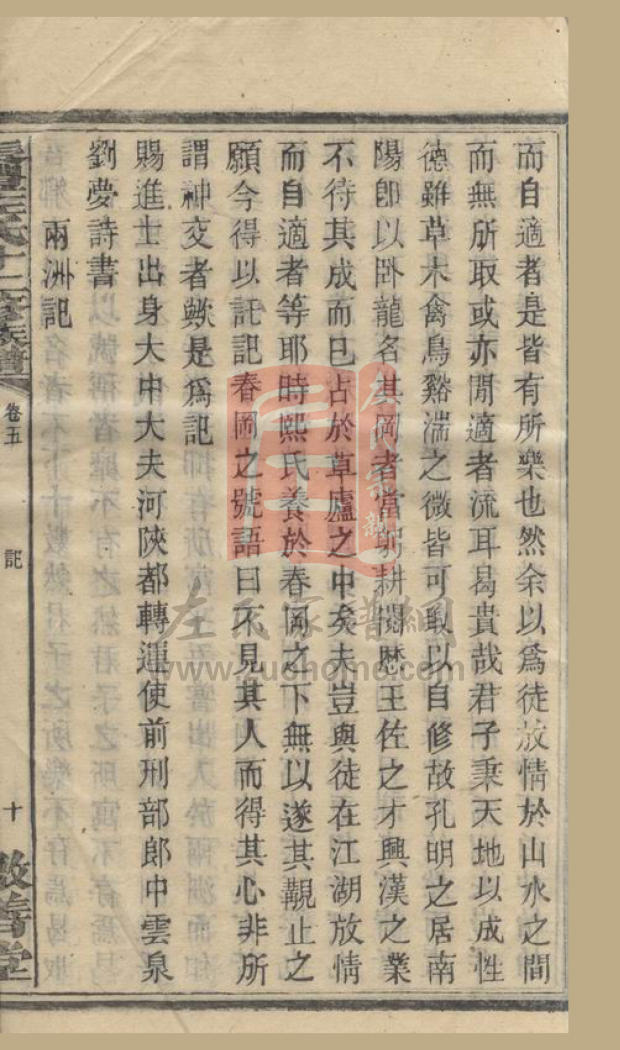 而自適者是皆有所樂也然余以爲徒放情於山水之間
而無所取或亦閒適者流耳曷貴哉君子秉天地以成性
德雖草木禽鳥谿湍之微皆可取以自修故孔明之居南
陽即以卧龍名其岡者當躬耕閱歷王佐之才興漢之業
不待其成而已占於草廬之中矣夫豈與徒在江湖放情
而自適者等耶時熙氏養於春岡之下無以遂其觀止之
願今得以託記春岡之號語曰不見其人而得其心非所
謂神交者歟是爲記
賜進士出身大中大夫河陝都轉運使前刑部郎中雲泉
劉夢詩書
兩洲記
左氏十二修族譜
卷五
記
十
敦善堂
左氏家譜網
www.zuohome.com